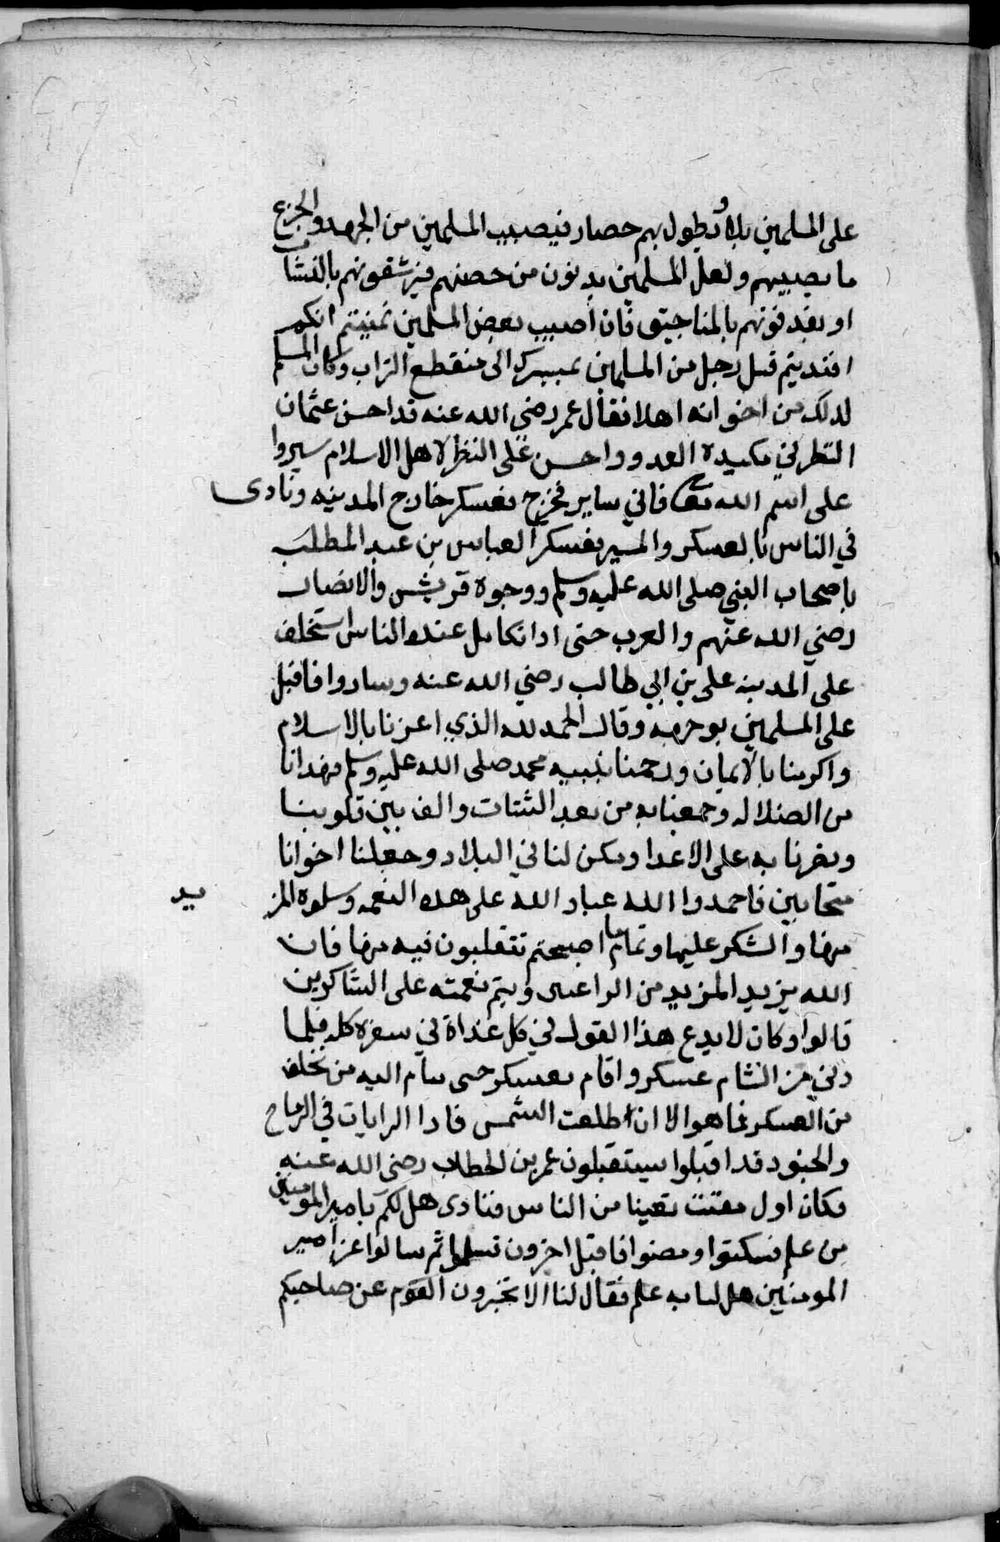 على المسلمين بلاء ويطول بهم حصار فيصيب المسلمين من الجهد والجزع
ما يصيبهم ولعل المسلمين يدنون من حصنهم فيرشقونهم بالنشاب
او يقذفونهم بالمناجيق فان اصيب بعض المسلمين تمنيتم انكم
افتديتم قتل رجل من المسلمين بمسيرك الى منقطع التراب وكان المسلم
لذلك من اخوانه اهلا فقال عمر رضي الله عنه قد احسن عثمان
النظر في مكيدة العدو واحسن على النظر لاهل الاسلام سيروا
على اسم الله تعالى فاني ساير فخرج فعسكر خارج المدينه ونادى
في الناس بالعسكر والمسير فعسكر العباس بن عبد المطلب
باصحاب النبي صلى الله عليه وسلم ووجوه قريش والانصار
رضي الله عنهم والعرب حتى اذا تكامل عنده الناس استخلف
على المدينه علي بن ابي طالب رضي الله عنه وساروا فاقبل
على المسلمين بوجهه وقال الحمد لله الذي اعزنا بالاسلام
واكرمنا بالايمان ورحمنا بنبيه محمد صلى الله عليه وسلم فهدانا
من الضلاله وجمعنا به من بعد الشتات والف بين قلوبنا
ونصرنا به على الاعدا ومكن لنا في البلاد وجعلنا اخوانا
متحابين فاحمدوا الله عباد الله على هذه النعمه وسلوه المزيد
منها والشكر عليها وتمام ما اصبحتم تتقلبون فيه منها فان
الله يزيد المزيد من الراغبين ويتم نعمته على الشاكرين
قالوا وكان لا يدع هذا القول في كل غداة في سفره كله فلما
دنى من الشام عسكر واقام بعسكر حتى تتام اليه من تخلف
من العسكر فما هو الا ان طلعت الشمس فاذا الرايات في الرماح
والجنود قد اقبلوا يستقبلون عمر بن الخطاب رضي الله عنه
فكان اول لقينا من الناس فنادى هل لكم بامير المومنين
من علم فسكتوا ومضوا فاقبل اخرون فسلموا ثم سالوا عن امير
المومنين هل لنا به علم فقال لنا الا تخبرون القوم عن صاحبكم